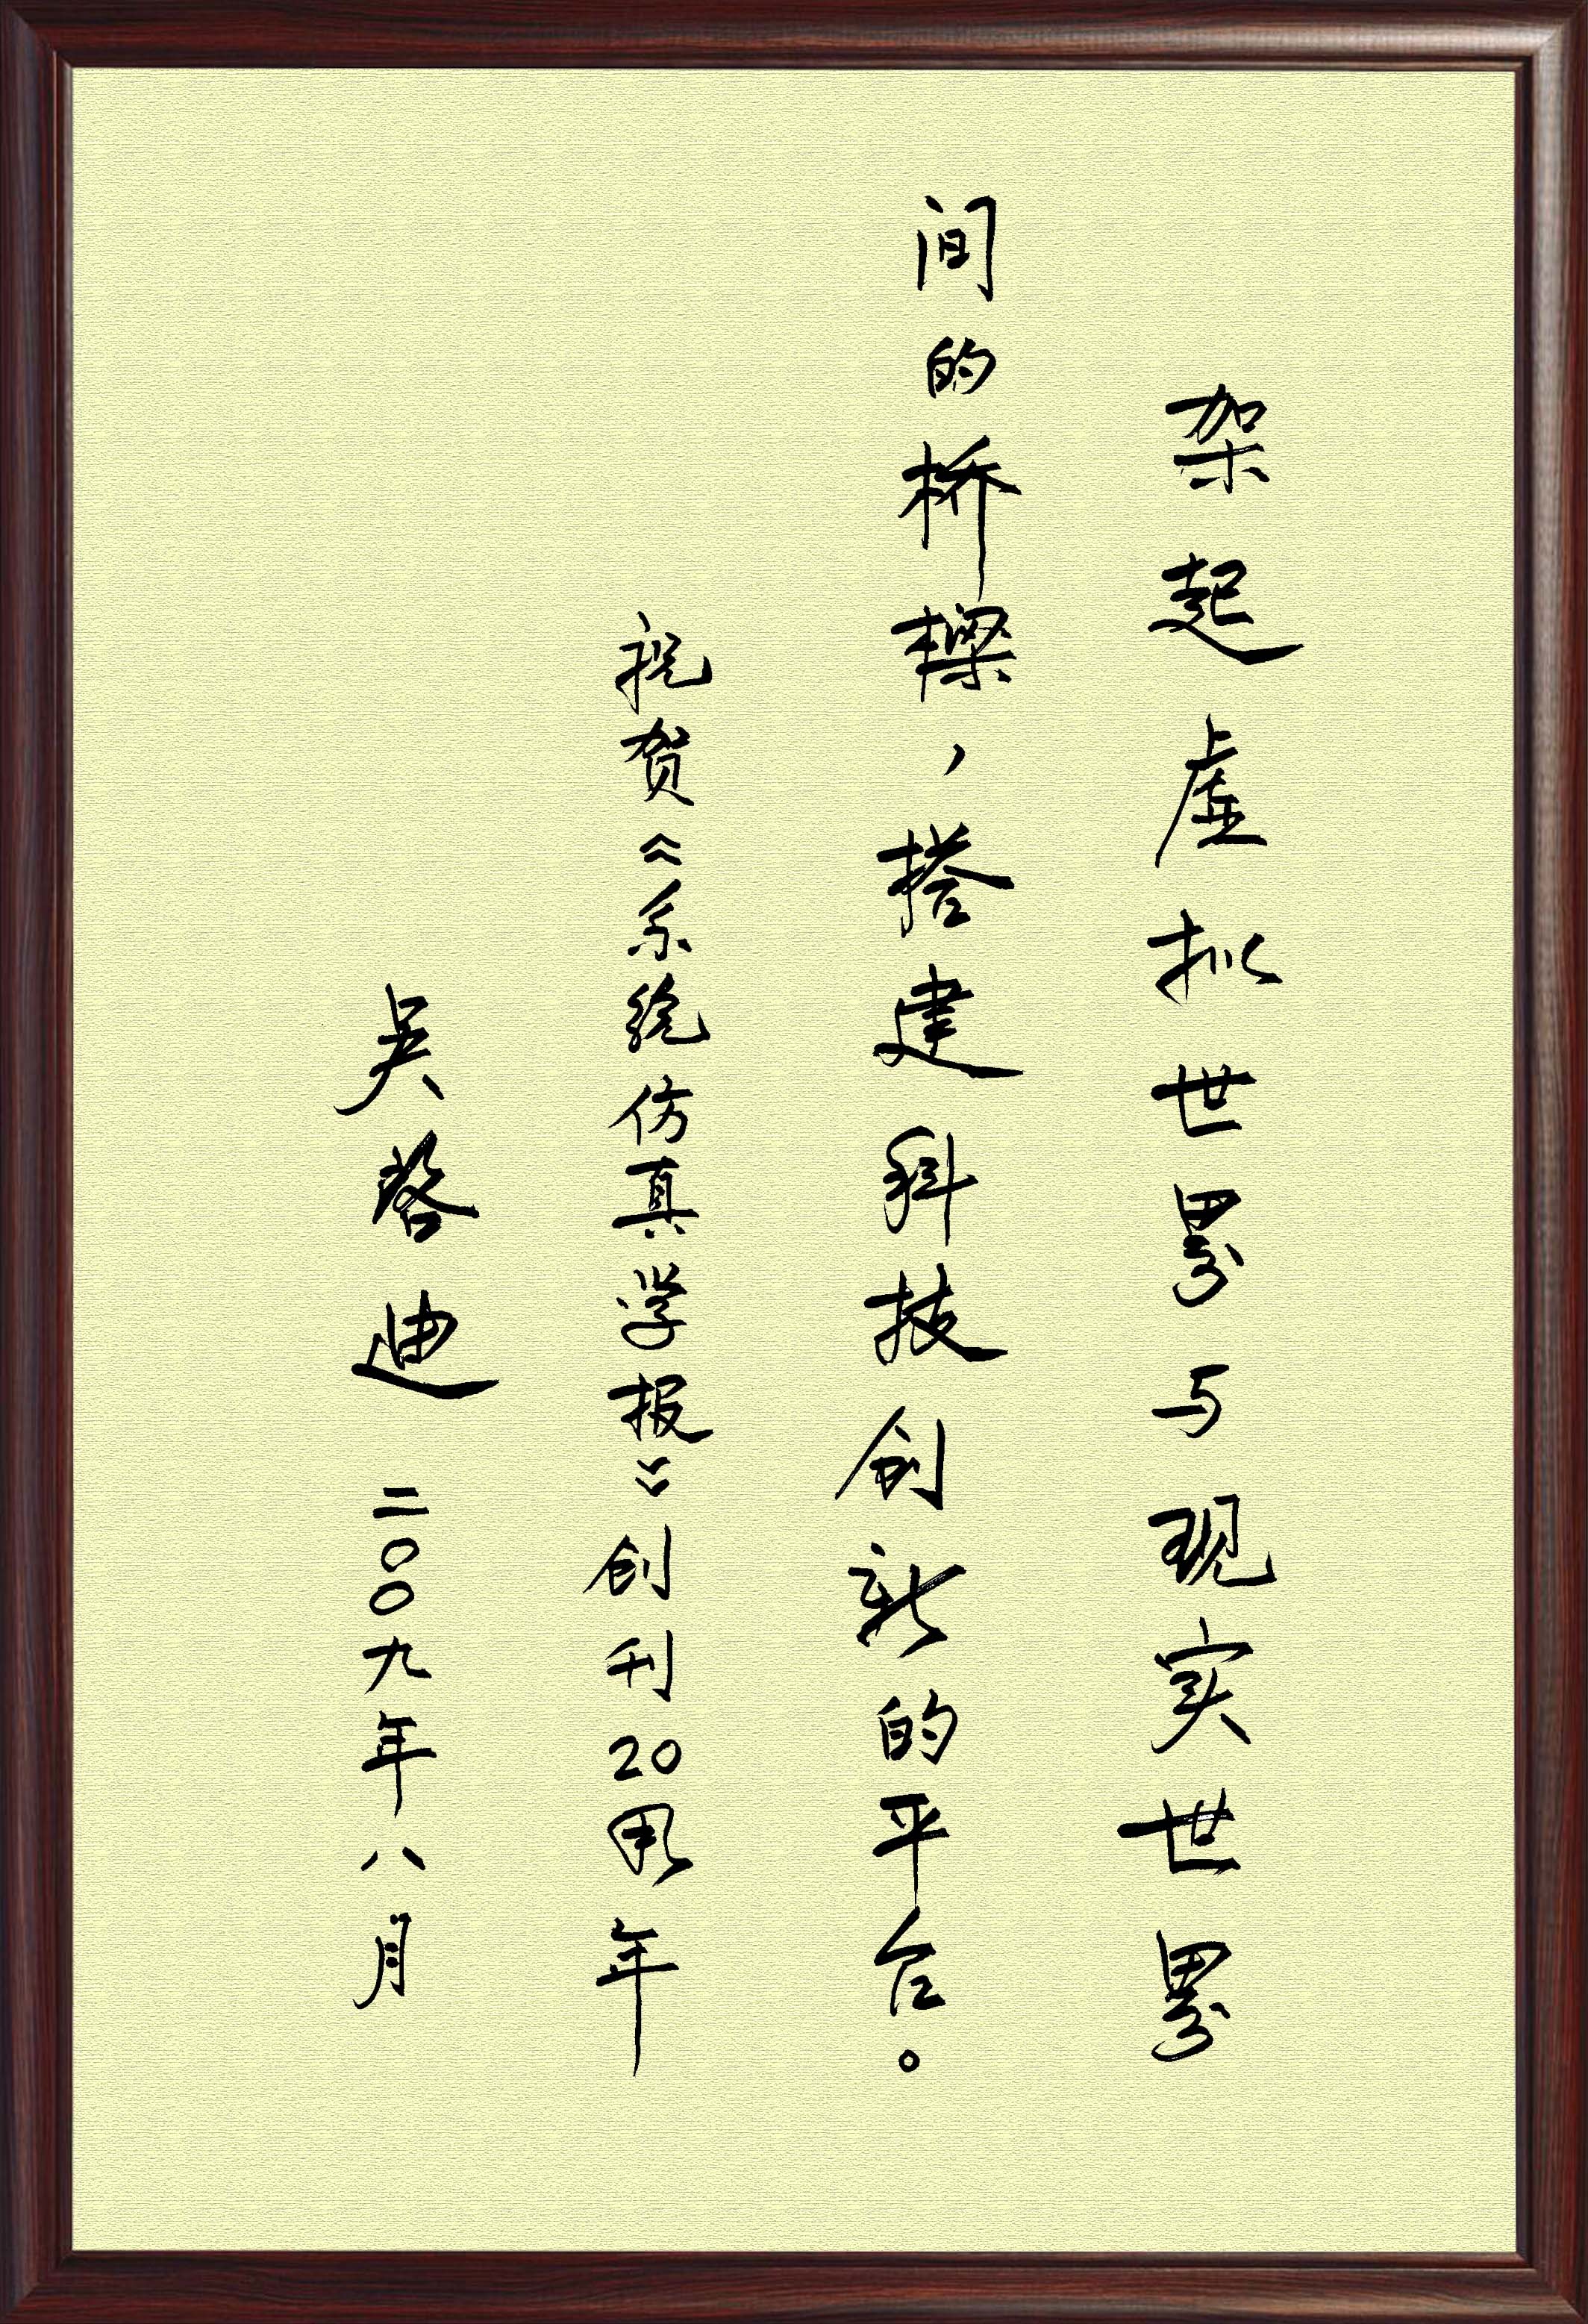 架起虚拟世界与现实世界
间的桥樑，搭建科技创新的平台。
祝贺《系统仿真学报》创刊20周年
吴启迪 二〇〇九年八月